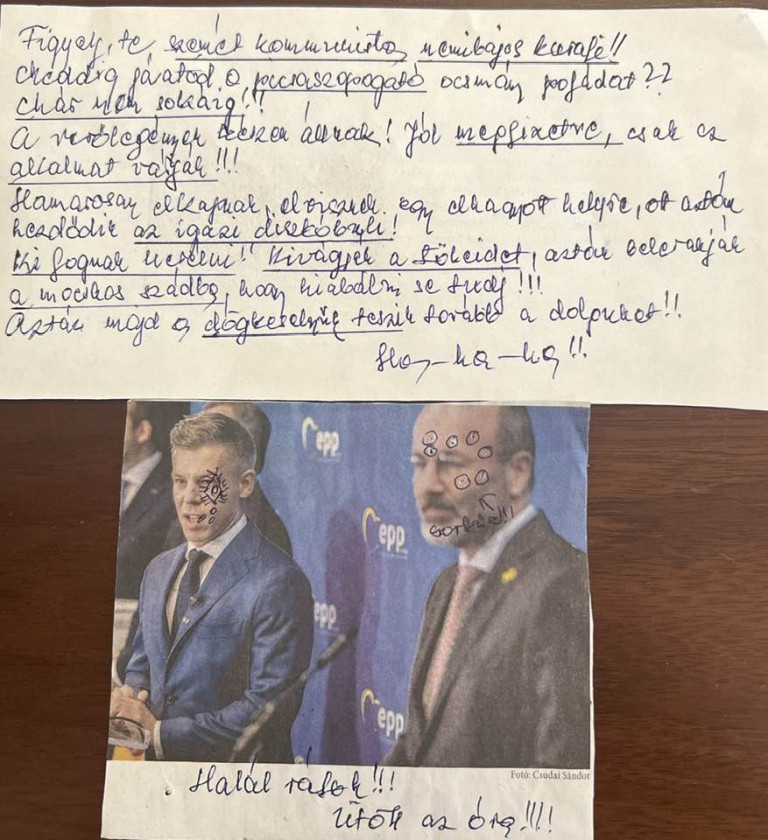 Figyelj, te szemét kommunista, nemibajos kurafi!!
Meddig járatod a pocsolyaszopogató ocsmány pofádat??
Már nem sokáig!!!
A verőlegények készen állnak! Jól megfizetve, csak az
alkalmat várják!!!
Hamarosan elkapnak, elvisznek egy elhagyott helyre, ot aztán
kezdődik az igazi diszkóbuli!
Ki fognak herélni!! Kivágják a tökeidet, aztán belerakják
a mocskos szádba, hogy kiabálni se tudj!!!
Aztán majd a dögkeselyűk teszik tovább a dolgukat!!
Ha-ha-ha!!
epp
epp
epp
epp
sortűz!!!
Fotó: Csudai Sándor
Halál rátok!!!
Ütött az óra!!!!